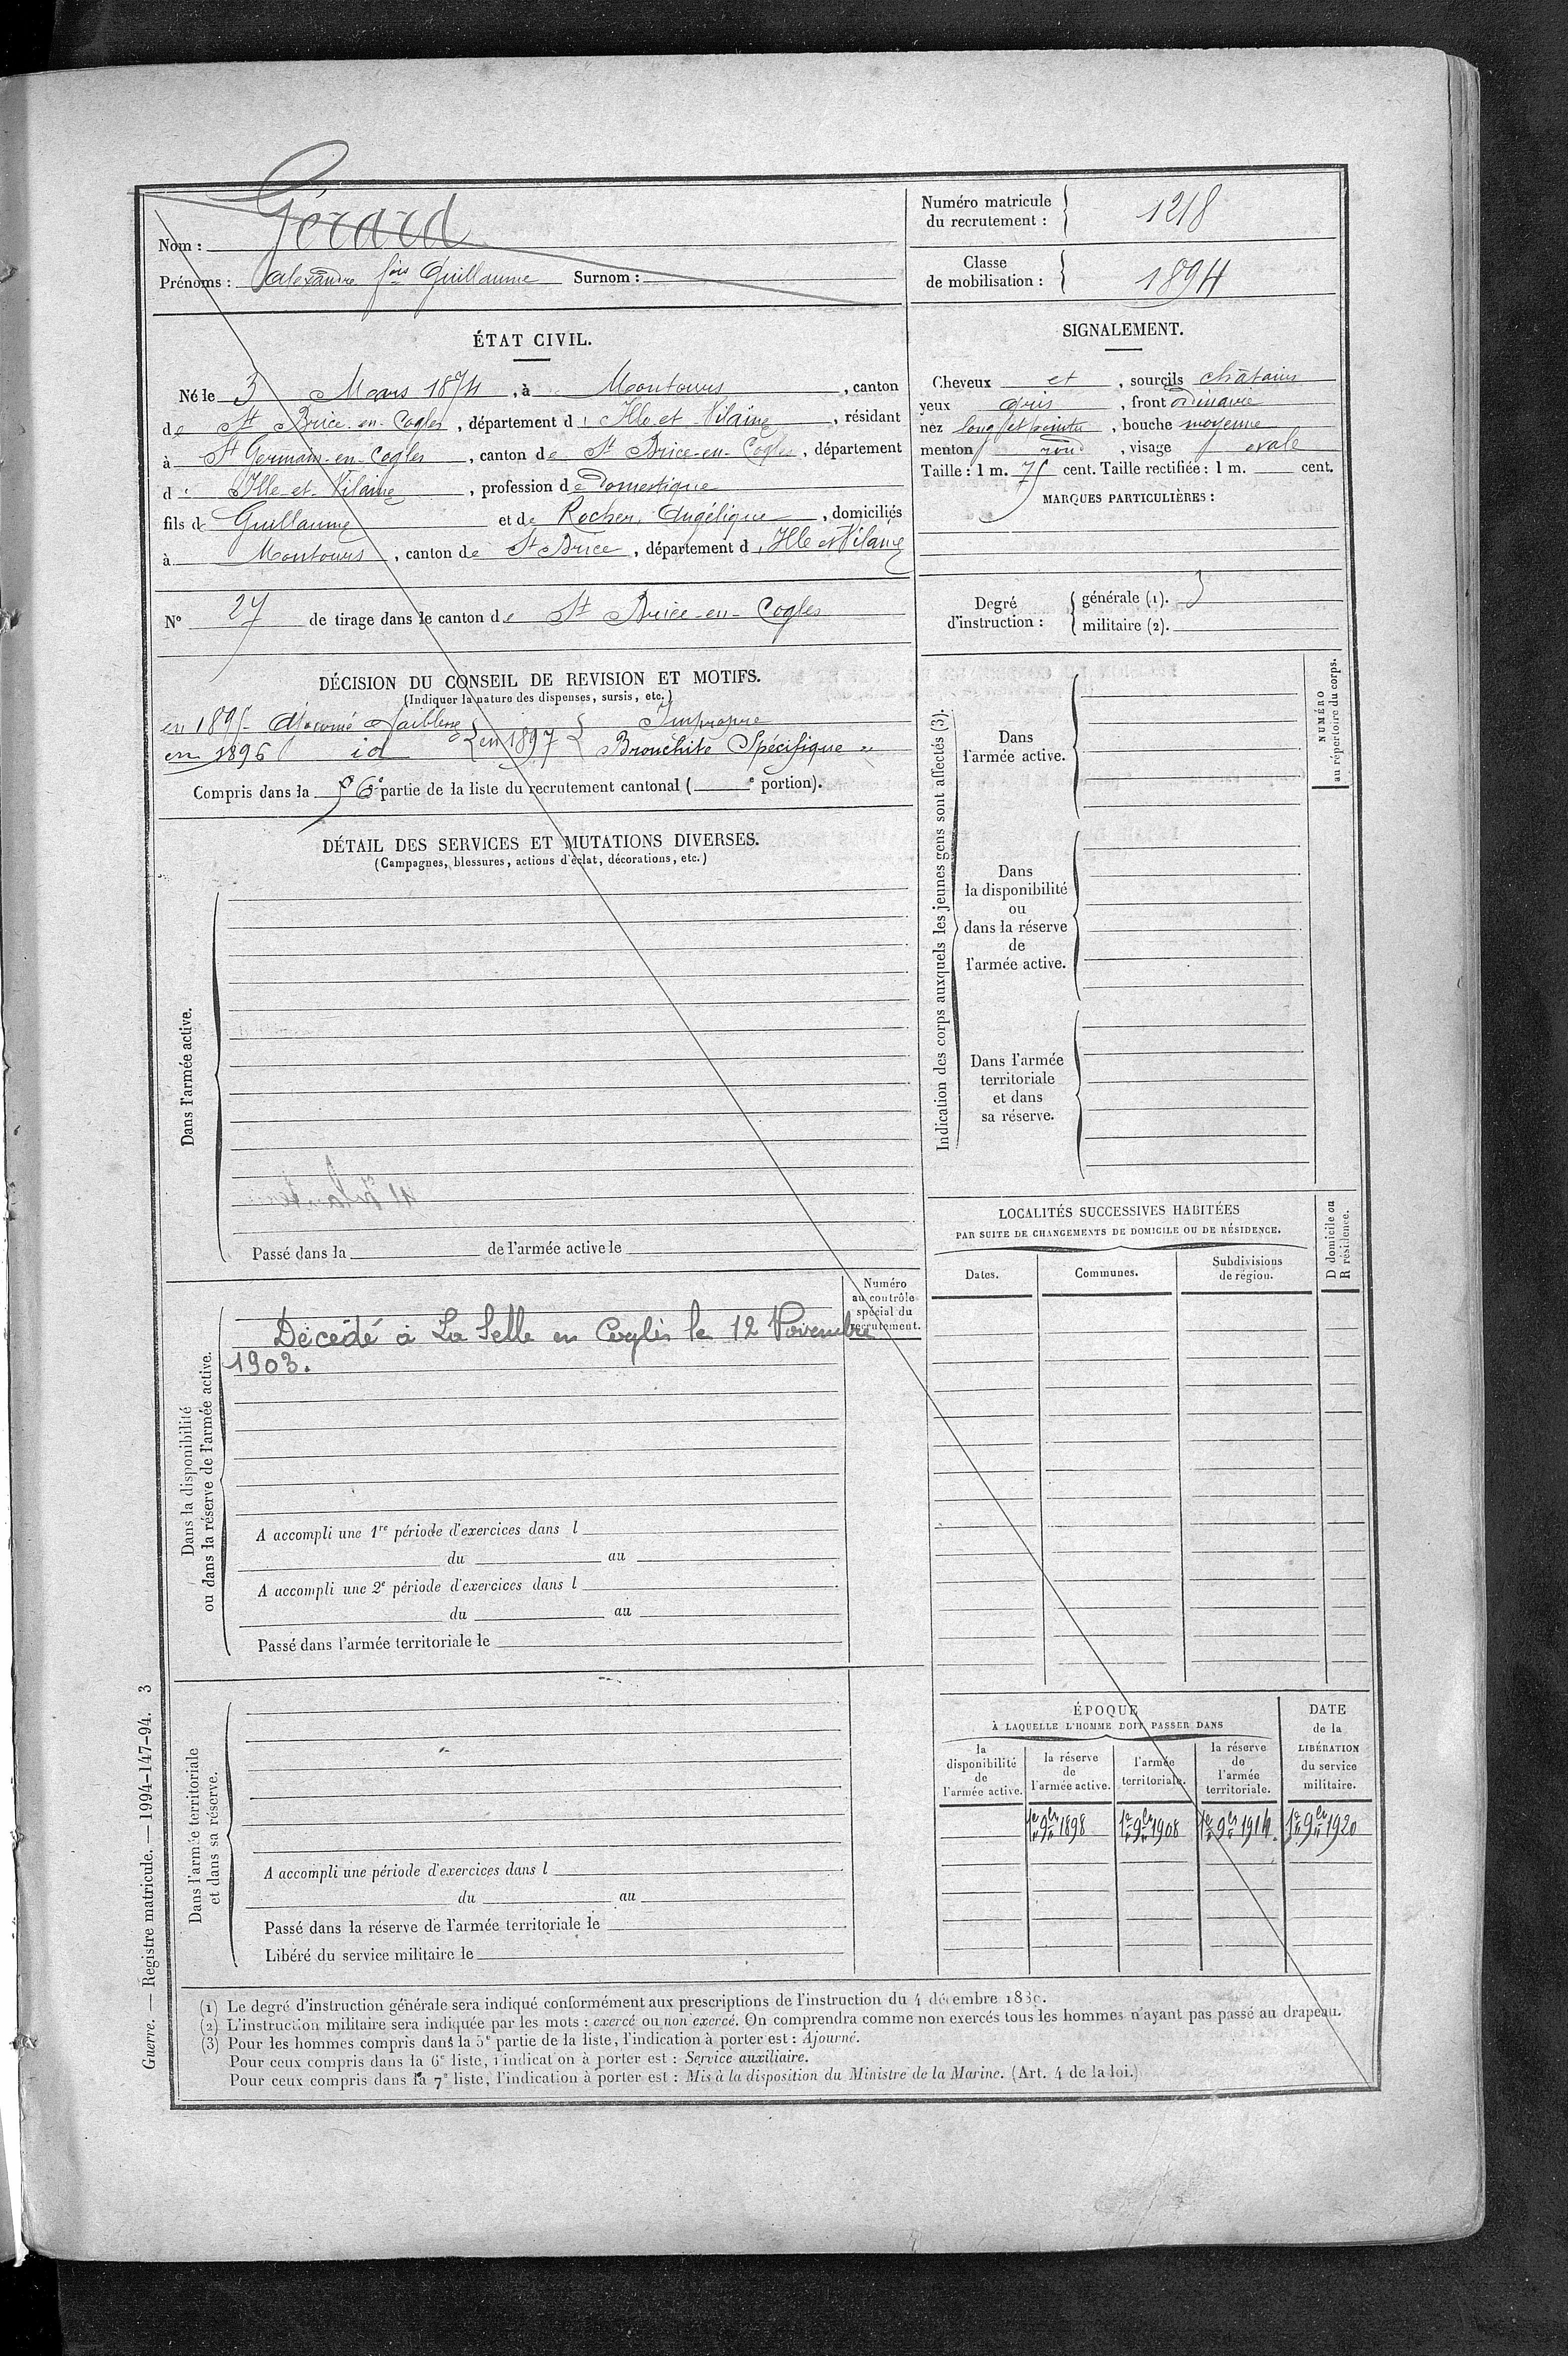 Nom : Gérard
Prénoms : Alexandre fois Guillaume Surnom :
Numéro matricule du recrutement : 1218
Classe de mobilisation : 1894
ÉTAT CIVIL.
Né le 3 Mars 1874, à Montours, canton
de St Brice-en-Cogles, département d Ille-et-Vilaine, résidant
à St Germain-en-Cogles, canton de St Brice-en-Cogles, département
d Ille-et-Vilaine, profession de Domestique
fils de Guillaume et de Rocher, Angélique, domiciliés
à Montours, canton de St Brice, département d Ille et Vilaine
SIGNALEMENT.
Cheveux et, sourcils châtains
yeux gris, front ordinaire
nez long et pointu, bouche moyenne
menton rond, visage ovale
Taille : 1 m. 75 cent. Taille rectifiée : 1 m. cent.
MARQUES PARTICULIÈRES :
N° 27 de tirage dans le canton de St Brice-en-Cogles
Degré d'instruction :
générale (1). 3
militaire (2).
DÉCISION DU CONSEIL DE REVISION ET MOTIFS.
(Indiquer la nature des dispenses, sursis, etc.)
en 1895 Ajourné Faiblesse
en 1896 id
en 1897
Impropre
Bronchite Spécifique
Compris dans la 5e 6e partie de la liste du recrutement cantonal ( e portion).
DÉTAIL DES SERVICES ET MUTATIONS DIVERSES.
(Campagnes, blessures, actions d'éclat, décorations, etc.)
Dans l'armée active.
Passé dans la de l'armée active le
Indication des corps auxquels les jeunes gens sont affectés (3).
Dans
l'armée active.
Dans
la disponibilité
ou
dans la réserve
de
l'armée active.
Dans l'armée
territoriale
et dans
sa réserve.
NUMÉRO
au répertoire du corps.
Numéro
au contrôle
spécial du
recrutement.
Dans la disponibilité
ou dans la réserve de l'armée active.
Décédé à La Selle en Coglès le 12 Novembre
1903.
A accompli une 1re période d'exercices dans l
du au
A accompli une 2e période d'exercices dans l
du au
Passé dans l'armée territoriale le
LOCALITÉS SUCCESSIVES HABITÉES
PAR SUITE DE CHANGEMENTS DE DOMICILE OU DE RÉSIDENCE.
Dates.
Communes.
Subdivisions
de région.
D domicile ou
R résidence.
Dans l'armée territoriale
et dans sa réserve.
A accompli une période d'exercices dans l
du au
Passé dans la réserve de l'armée territoriale le
Libéré du service militaire le
ÉPOQUE
À LAQUELLE L'HOMME DOIT PASSER DANS
la
disponibilité
de
l'armée active.
la réserve
de
l'armée active.
l'armée
territoriale.
la réserve
de
l'armée
territoriale.
DATE
de la
LIBÉRATION
du service
militaire.
1er 9bre 1898
1er 9bre 1908
1er 9bre 1914
1er 9bre 1920
(1) Le degré d'instruction générale sera indiqué conformément aux prescriptions de l'instruction du 4 décembre
(2) L'instruction militaire sera indiquée par les mots : exercé ou non exercé. On comprendra comme non exercés tous les hommes n'ayant pas passé au drapeau.
(3) Pour les hommes compris dans la 5e partie de la liste, l'indication à porter est : Ajourné.
Pour ceux compris dans la 6e liste, l'indication à porter est : Service auxiliaire.
Pour ceux compris dans la 7e liste, l'indication à porter est : Mis à la disposition du Ministre de la Marine. (Art. 4 de la loi.)
Guerre. — Registre matricule. — 1994-147-94. 3